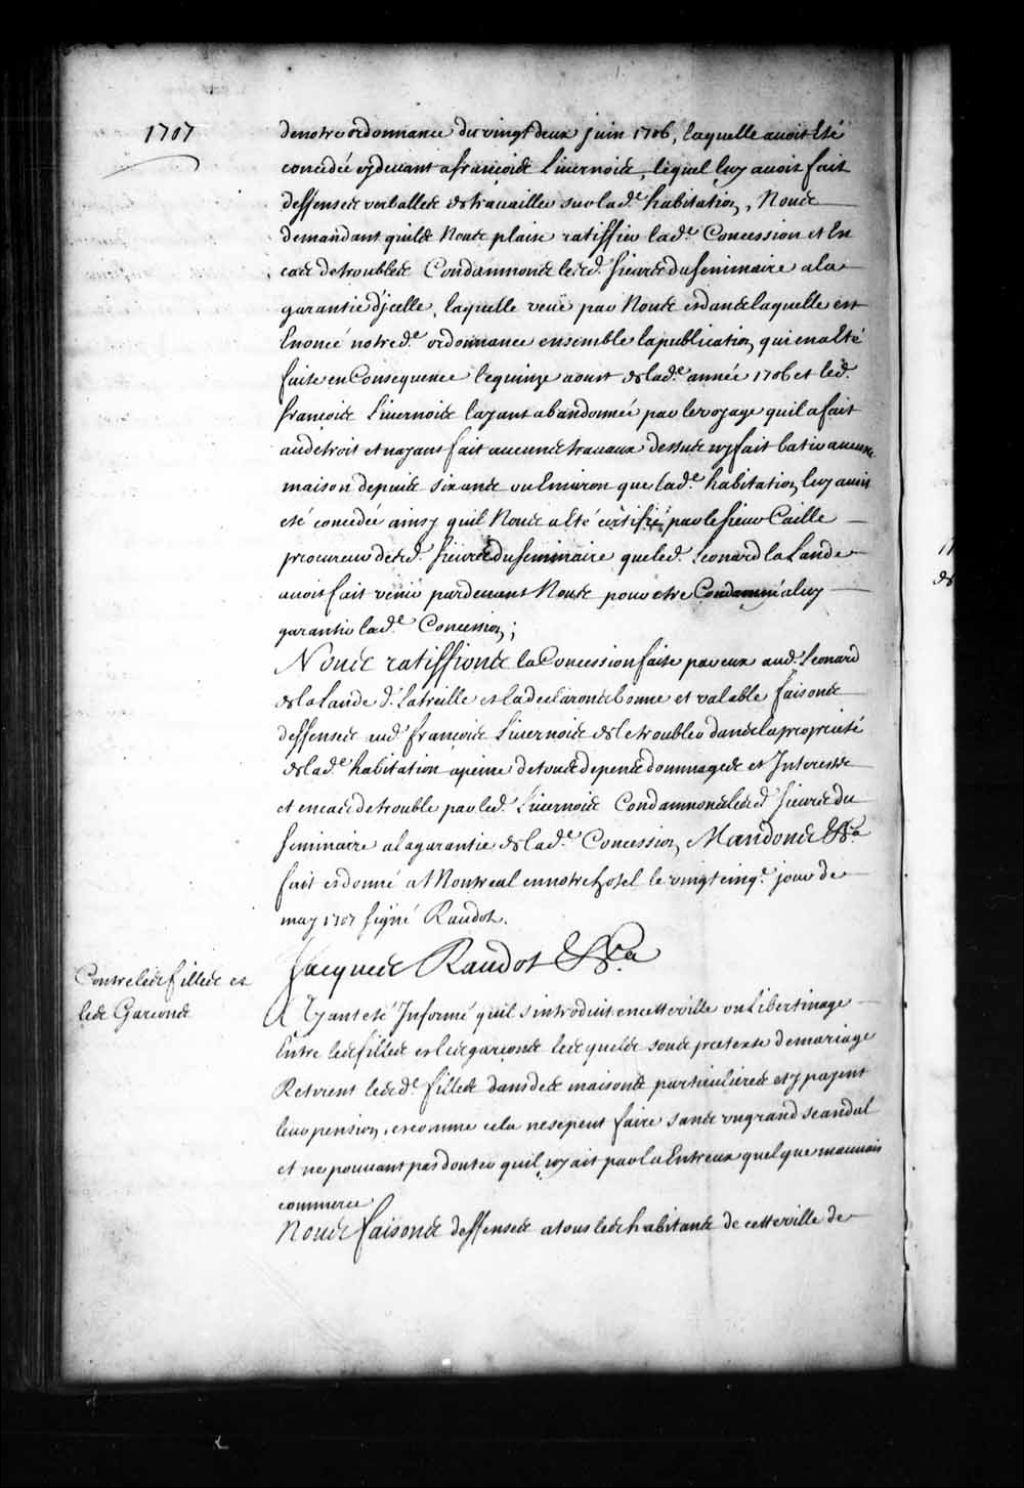 1707
de notre ordonnance du vingt deux juin 1706, laquelle avoit Eté
concedée cydevant a françois Livernois, lequel luy avoit fait
deffenses verballes de travailler sur lad.e habitation, Nous
demandant quil Nous plaise ratiffier lad.e Concession et En
cas de troubles Condamnons lesd. sieurs du seminaire a la
garantie d'jcelle, laquelle veüe par Nous et dans laquelle est
Enoncé notred.e ordonnance ensemble la publication qui en a Eté
faite en Consequence le quinze aoust de lad.e année 1706 et led.
françois Livernois layant abandonnée par le voyage quil a fait
au detroit et nayant fait aucuns travaux dessus ny fait batir aucune
maison depuis six ans ou Environ que lad.e habitation luy avoit
eté concedée ainsy quil Nous a Eté certifié par le sieur Caille
procureur desd. sieurs du seminaire que led. Leonard la Lande
avoit fait venir pardevant Nous pour etre Condamné a luy
garantir lad.e Concession;
Nous ratiffions la Concession faite par eux aud. Leonard
de la Lande d. Latreille et la declarons bonne et valable faisons
deffenses aud. françois Livernois de le troubler dans la proprieté
de lad.e habitation a peine de tous depens dommages et Interests
et en cas de trouble par led. Livernois Condamnons lesd. sieurs du
seminaire a la garantie de lad.e Concession, Mandons &ca
fait et donné a Montreal en notre hotel le vingt cinq.e jour de
may 1707 signé Raudot.
Contre les filles et
les Garçons
Jacques Raudot &ca
Ayant eté Informé quil s'introduit en cette ville un Libertinage
Entre les filles et les garçons lesquels sous pretexte de mariage
Retirent lesd.e filles dans des maisons particulieres et y payent
leur pension, et comme cela ne se peut faire sans un grand scandal
et ne pouvant pas douter quil ny ait par la Entreux quelque mauvais
commerce
Nous faisons deffenses a tous les habitans de cette ville de